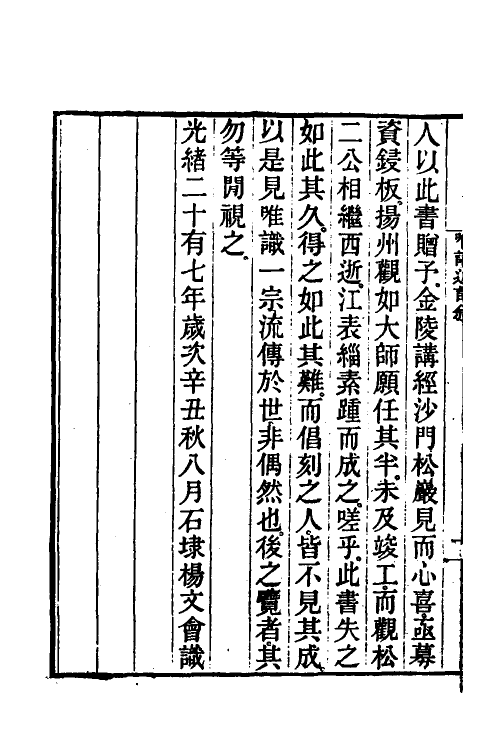 人以此書贈予。金陵講經沙門松巖見而心喜。亟募
資鋟板。揚州觀如大師願任其半。未及竣工。而觀松
二公相繼西逝。江表緇素踵而成之。嗟乎。此書失之
如此其久。得之如此其難。而倡刻之人。皆不見其成。
以是見唯識一宗流傳於世。非偶然也。後之覽者。其
勿等閒視之。
光緒二十有七年歲次辛丑秋八月石埭楊文會識